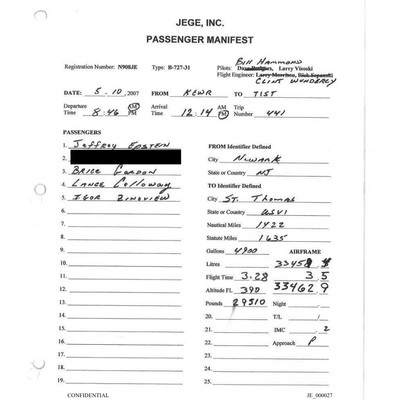 JEGE, INC.
PASSENGER MANIFEST
Bill Hammond
Registration Number: N908JE Type: B-727-31 Pilots: Larry Visoski
Flight Engineer: Larry Morrison
Clint
DATE: 5.10, 2007 FROM KEWR TO TIST
Departure Time 8:46 AM PM Arrival Time 12:14 AM PM Trip Number 441
PASSENGERS
1. Jeffrey Epstein
2.
3. Brice Gordon
4. Lance Calloway
5. Igor Zinoview
6.
7.
8.
9.
10.
11.
12.
13.
14.
15.
16.
17.
18.
19.
FROM Identifier Defined
City Newark
State or Country NJ
TO Identifier Defined
City St. Thomas
State or Country USVI
Nautical Miles 1422
Statute Miles 1635
Gallons 4900 AIRFRAME
Litres
Flight Time 3.28 3.5
Altitude FL 390 33462.9
Pounds 29510 Night
20. T/L /
21. IMC .2
22. Approach P
23.
24.
25.
CONFIDENTIAL JE_000027